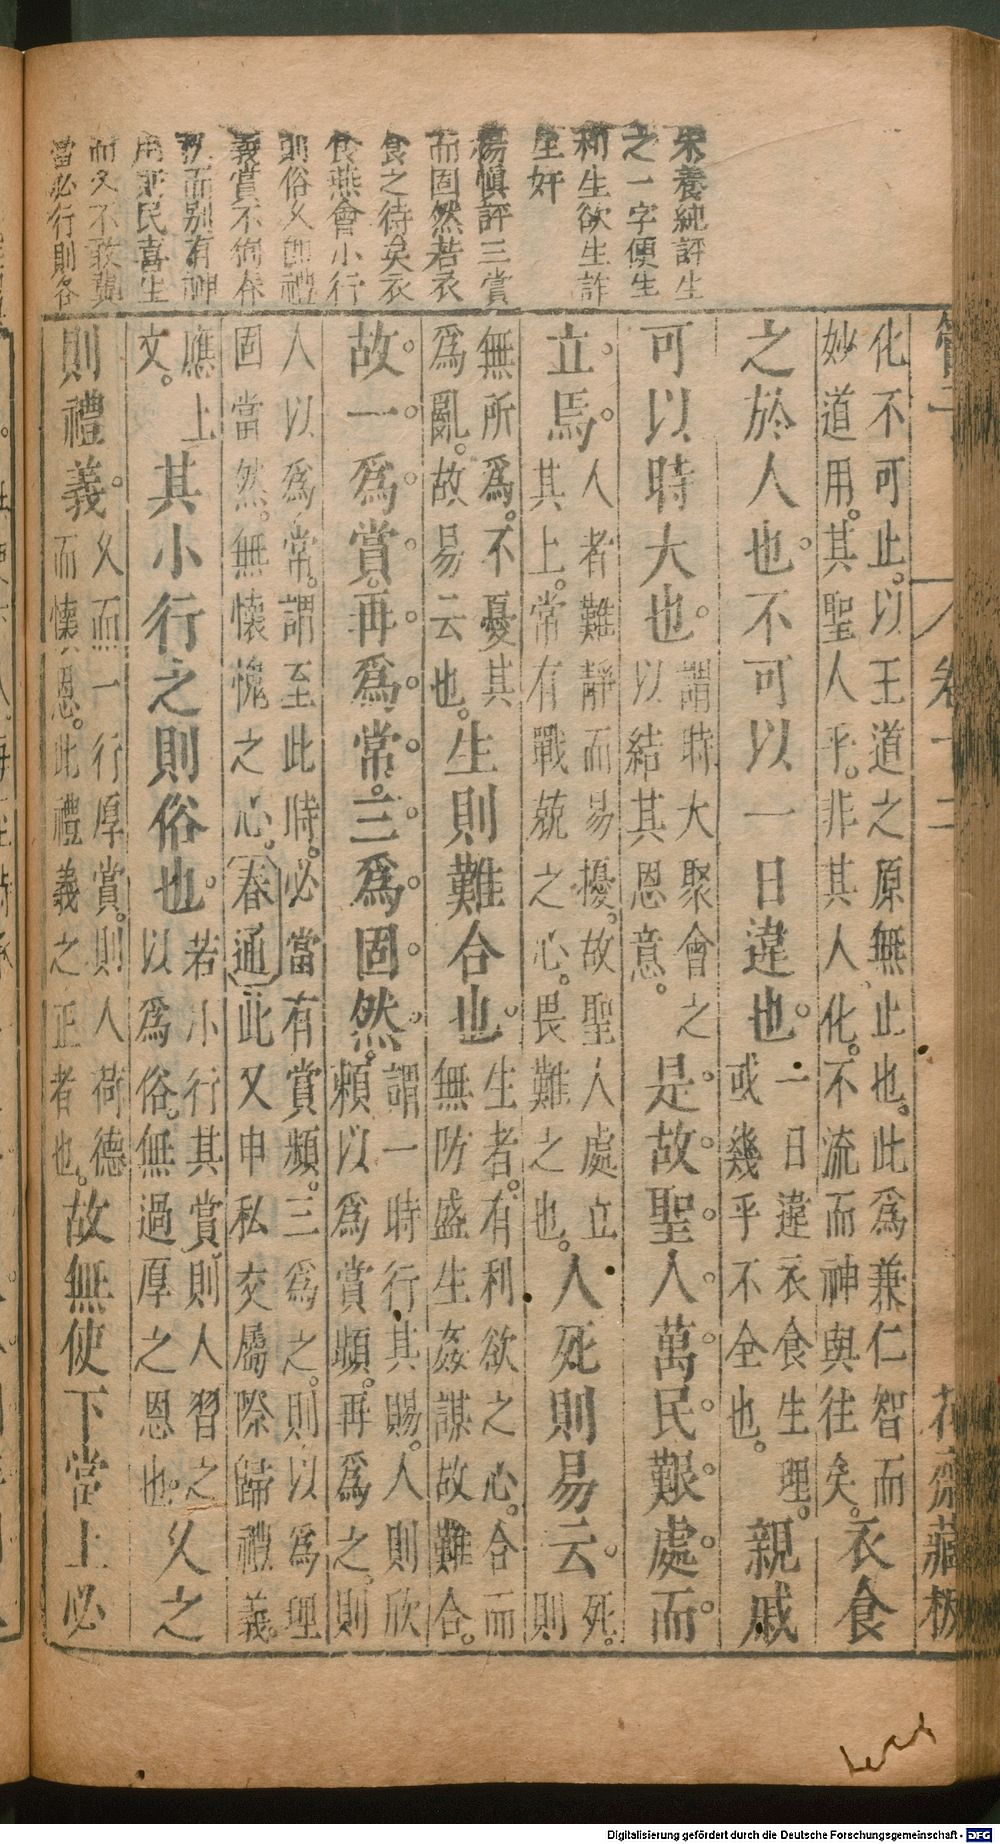 朱養純評生
之一字便生
利生欲生詐
生奸
楊慎評三賞
而固然若衣
食之待矣衣
食燕會小行
則俗乆則禮
義賞不徇春
秋而别有神
用兼民喜生
而又不敢
當必行則各
管子
卷十二
花齋藏板
化不可止。以王道之原無止也。此爲兼仁智而
妙道用。其聖人乎。非其人化。不流而神與往矣。衣食
之於人也。不可以一日違也。一日違衣食生理。
或幾乎不全也。親戚
可以時大也。謂時大聚會之
以結其恩意。是故聖人萬民艱處而
立焉。人者難靜而易擾。故聖人處立
其上。常有戰兢之心。畏難之也。人死則易云。死。則
無所爲。不憂其
爲亂。故易云也。生則難合也。生者。有利欲之心。合而
無防盛生姦謀故難合。
故一爲賞。再爲常。三爲固然。謂一時行其賜。人則欣
賴以爲賞頻。再爲之。則
人以爲常。謂至此時。必當有賞頻。三爲之。則以爲理
固當然。無懷愧之心。春通此又申私交屬際歸禮義。
應上
文。其小行之則俗也。若小行其賞。則人習之
以爲俗。無過厚之恩也。乆之
則禮義。乆而一行厚賞。則人荷德
而懷恩。此禮義之正者也。故無使下當上必
Digitalisierung gefördert durch die Deutsche Forschungsgemeinschaft - DFG